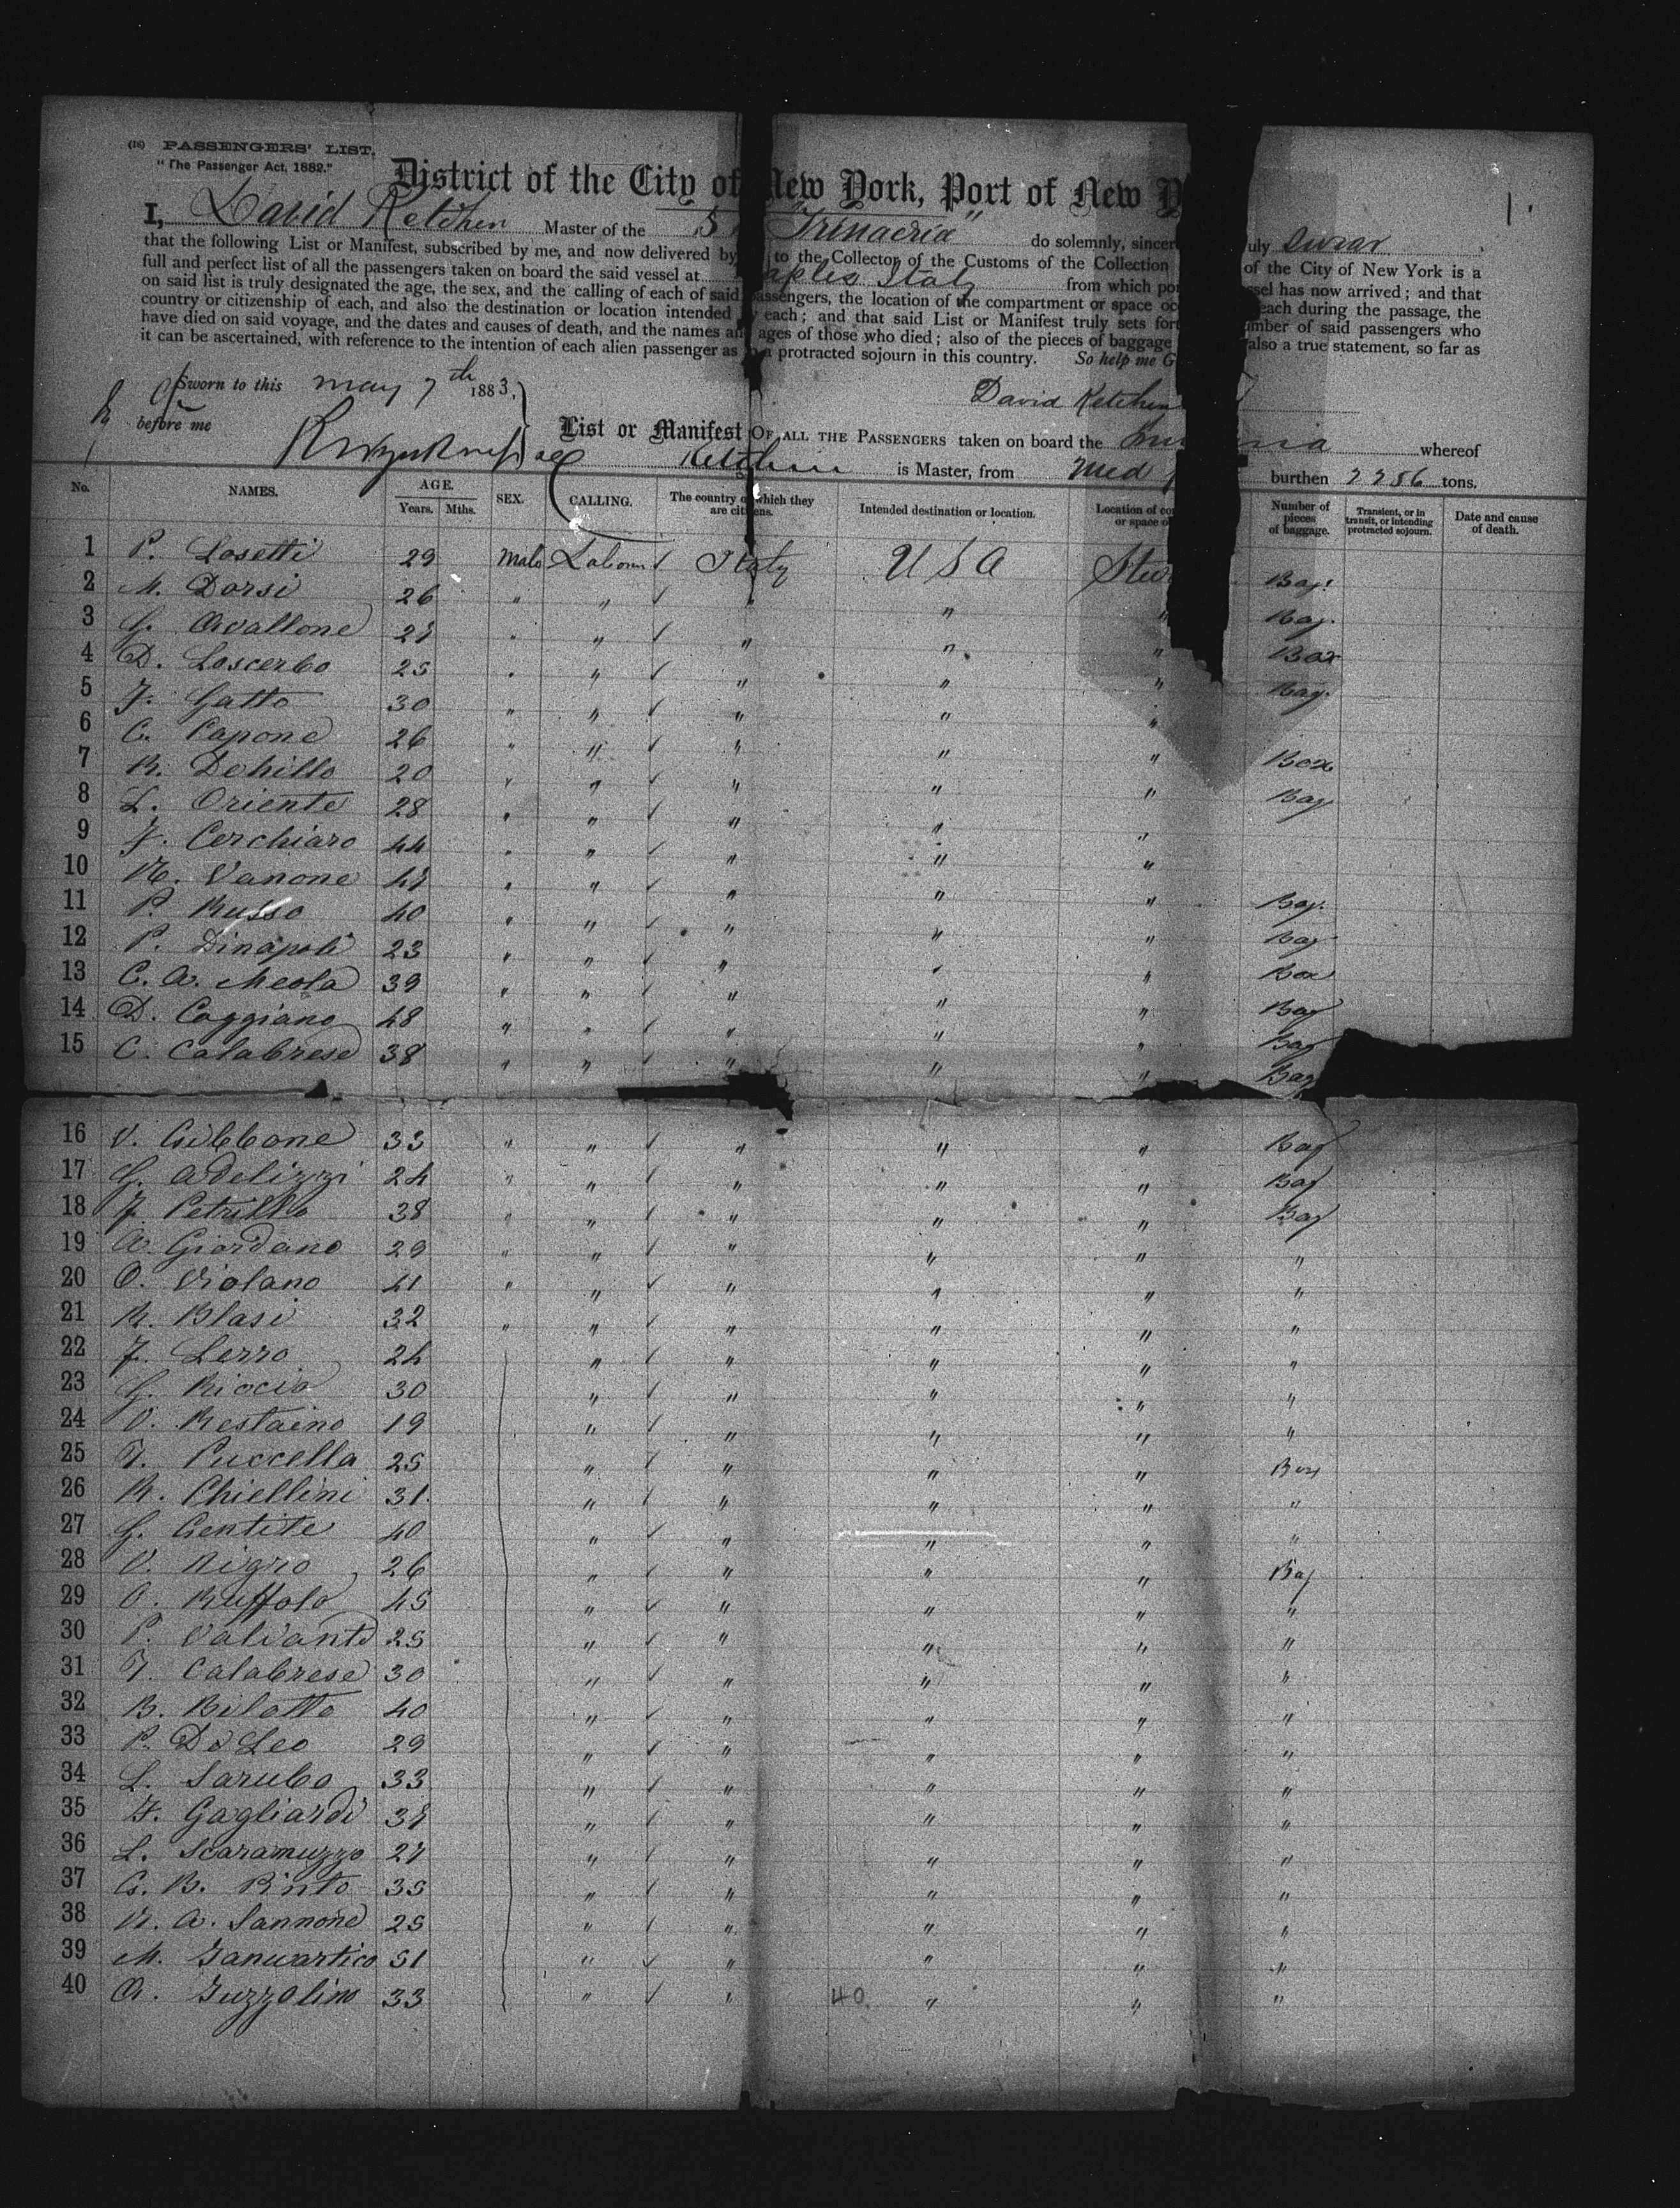 (18) PASSENGERS' LIST.
"The Passenger Act, 1882."
District of the City of New York, Port of New Y
1.
I, David Ketchen Master of the S "Trinacria" do solemnly, sincer uly Swear
that the following List or Manifest, subscribed by me, and now delivered by to the Collector of the Customs of the Collection of the City of New York is a
full and perfect list of all the passengers taken on board the said vessel at aples Italy from which por ssel has now arrived; and that
on said list is truly designated the age, the sex, and the calling of each of said passengers, the location of the compartment or space oc each during the passage, the
country or citizenship of each, and also the destination or location intended y each; and that said List or Manifest truly sets for umber of said passengers who
have died on said voyage, and the dates and causes of death, and the names and ages of those who died; also of the pieces of baggage also a true statement, so far as
it can be ascertained, with reference to the intention of each alien passenger as a protracted sojourn in this country. So help me G
Sworn to this May 7th 1883,
David Ketchen
before me
List or Manifest OF ALL THE PASSENGERS taken on board the whereof
Ketchen is Master, from Med burthen 2256 tons.
No. NAMES. AGE. Years. Mths. SEX. CALLING. The country of which they are citizens. Intended destination or location. Location of co or space o Number of pieces of baggage. Transient, or in transit, or intending protracted sojourn. Date and cause of death.
1 P. Losetti 29 Male Labour ✓ Italy U S A Stee Bag.
2 M. Dorsi 26 " " ✓ " " " Bag.
3 G. Avallone 27 " " ✓ " " " Box
4 D. Loscerbo 25 " " ✓ " " " Bag.
5 F. Gatto 30 " " ✓ " " "
6 C. Capone 26 " " ✓ " " " Box
7 R. Dehillo 20 " " ✓ " " " Bag
8 L. Oriente 28 " " ✓ " " "
9 F. Cerchiaro 44 " " ✓ " " "
10 N. Vanone 47 " " ✓ " " " Bag.
11 P. Russo 40 " " ✓ " " " Bag
12 P. Dinapoli 23 " " ✓ " " " Box
13 C. A. Meola 39 " " ✓ " " " Bag
14 D. Caggiano 48 " " ✓ " " " Bag
15 C. Calabrese 38 " " ✓ " " " Bag
16 V. Gibbone 33 " " ✓ " " " Bag
17 G. Adelizzi 24 " " ✓ " " " Bag
18 F. Petrillo 38 " " ✓ " " " Bag
19 A. Giordano 29 " " ✓ " " " "
20 O. Violano 41 " " ✓ " " " "
21 R. Blasi 32 " " ✓ " " " "
22 F. Lerro 24 " ✓ " " " "
23 G. Riccio 30 " ✓ " " " "
24 V. Restaino 19 " ✓ " " " "
25 F. Puccella 25 " ✓ " " " Box
26 R. Chiellini 31 " ✓ " " " "
27 G. Gentile 40 " ✓ " " " "
28 V. Nigro 26 " " " " Bag
29 O. Ruffolo 45 " ✓ " " " "
30 P. Valvante 25 " ✓ " " " "
31 F. Calabrese 30 " ✓ " " " "
32 B. Bilotto 40 " ✓ " " " "
33 P. De Leo 29 " ✓ " " " "
34 L. Sarubo 33 " ✓ " " " "
35 F. Gagliardi 37 " ✓ " " " "
36 L. Scaramuzzo 27 " ✓ " " " "
37 G. B. Pinto 35 " ✓ " " " "
38 N. A. Iannone 25 " ✓ " " " "
39 M. Ianuartico 51 " ✓ " " " "
40 A. Iuzzolino 33 " ✓ " 40 " " "